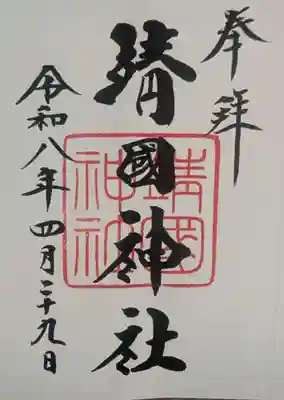 奉拝
靖國神社
靖国神社
令和八年四月二十九日